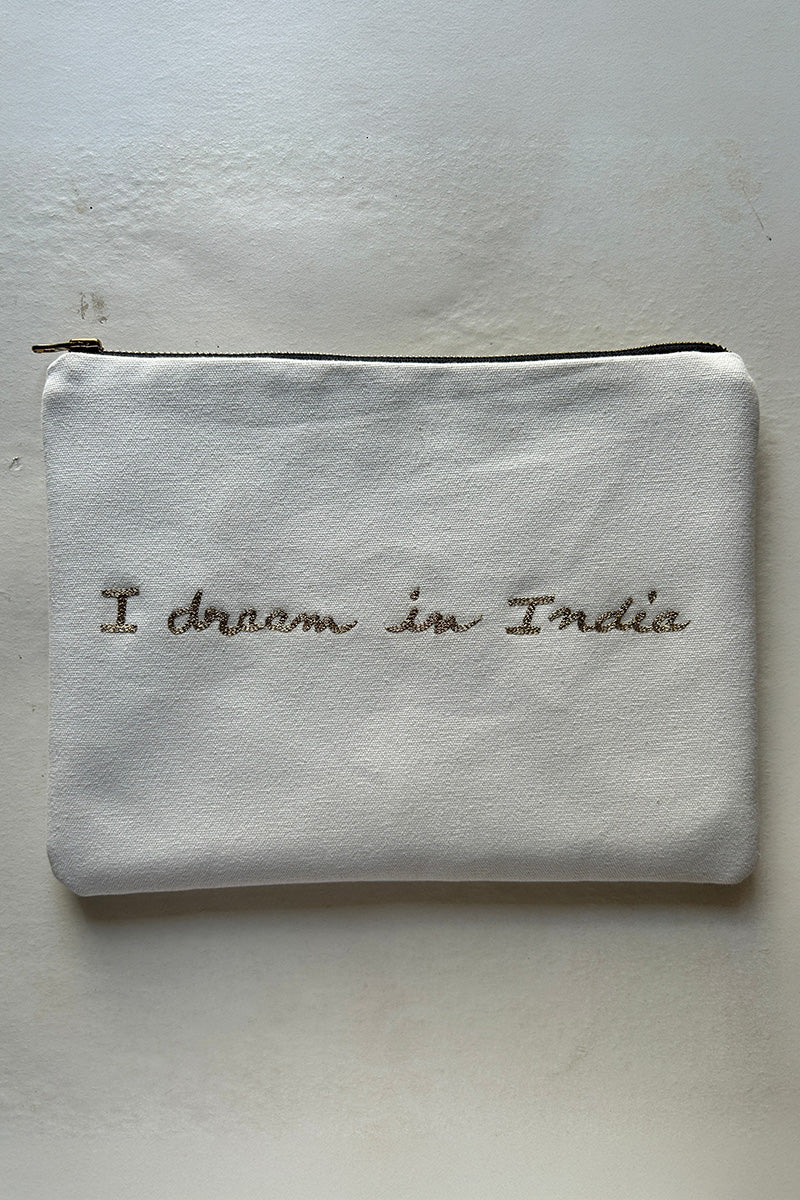 I dream in India